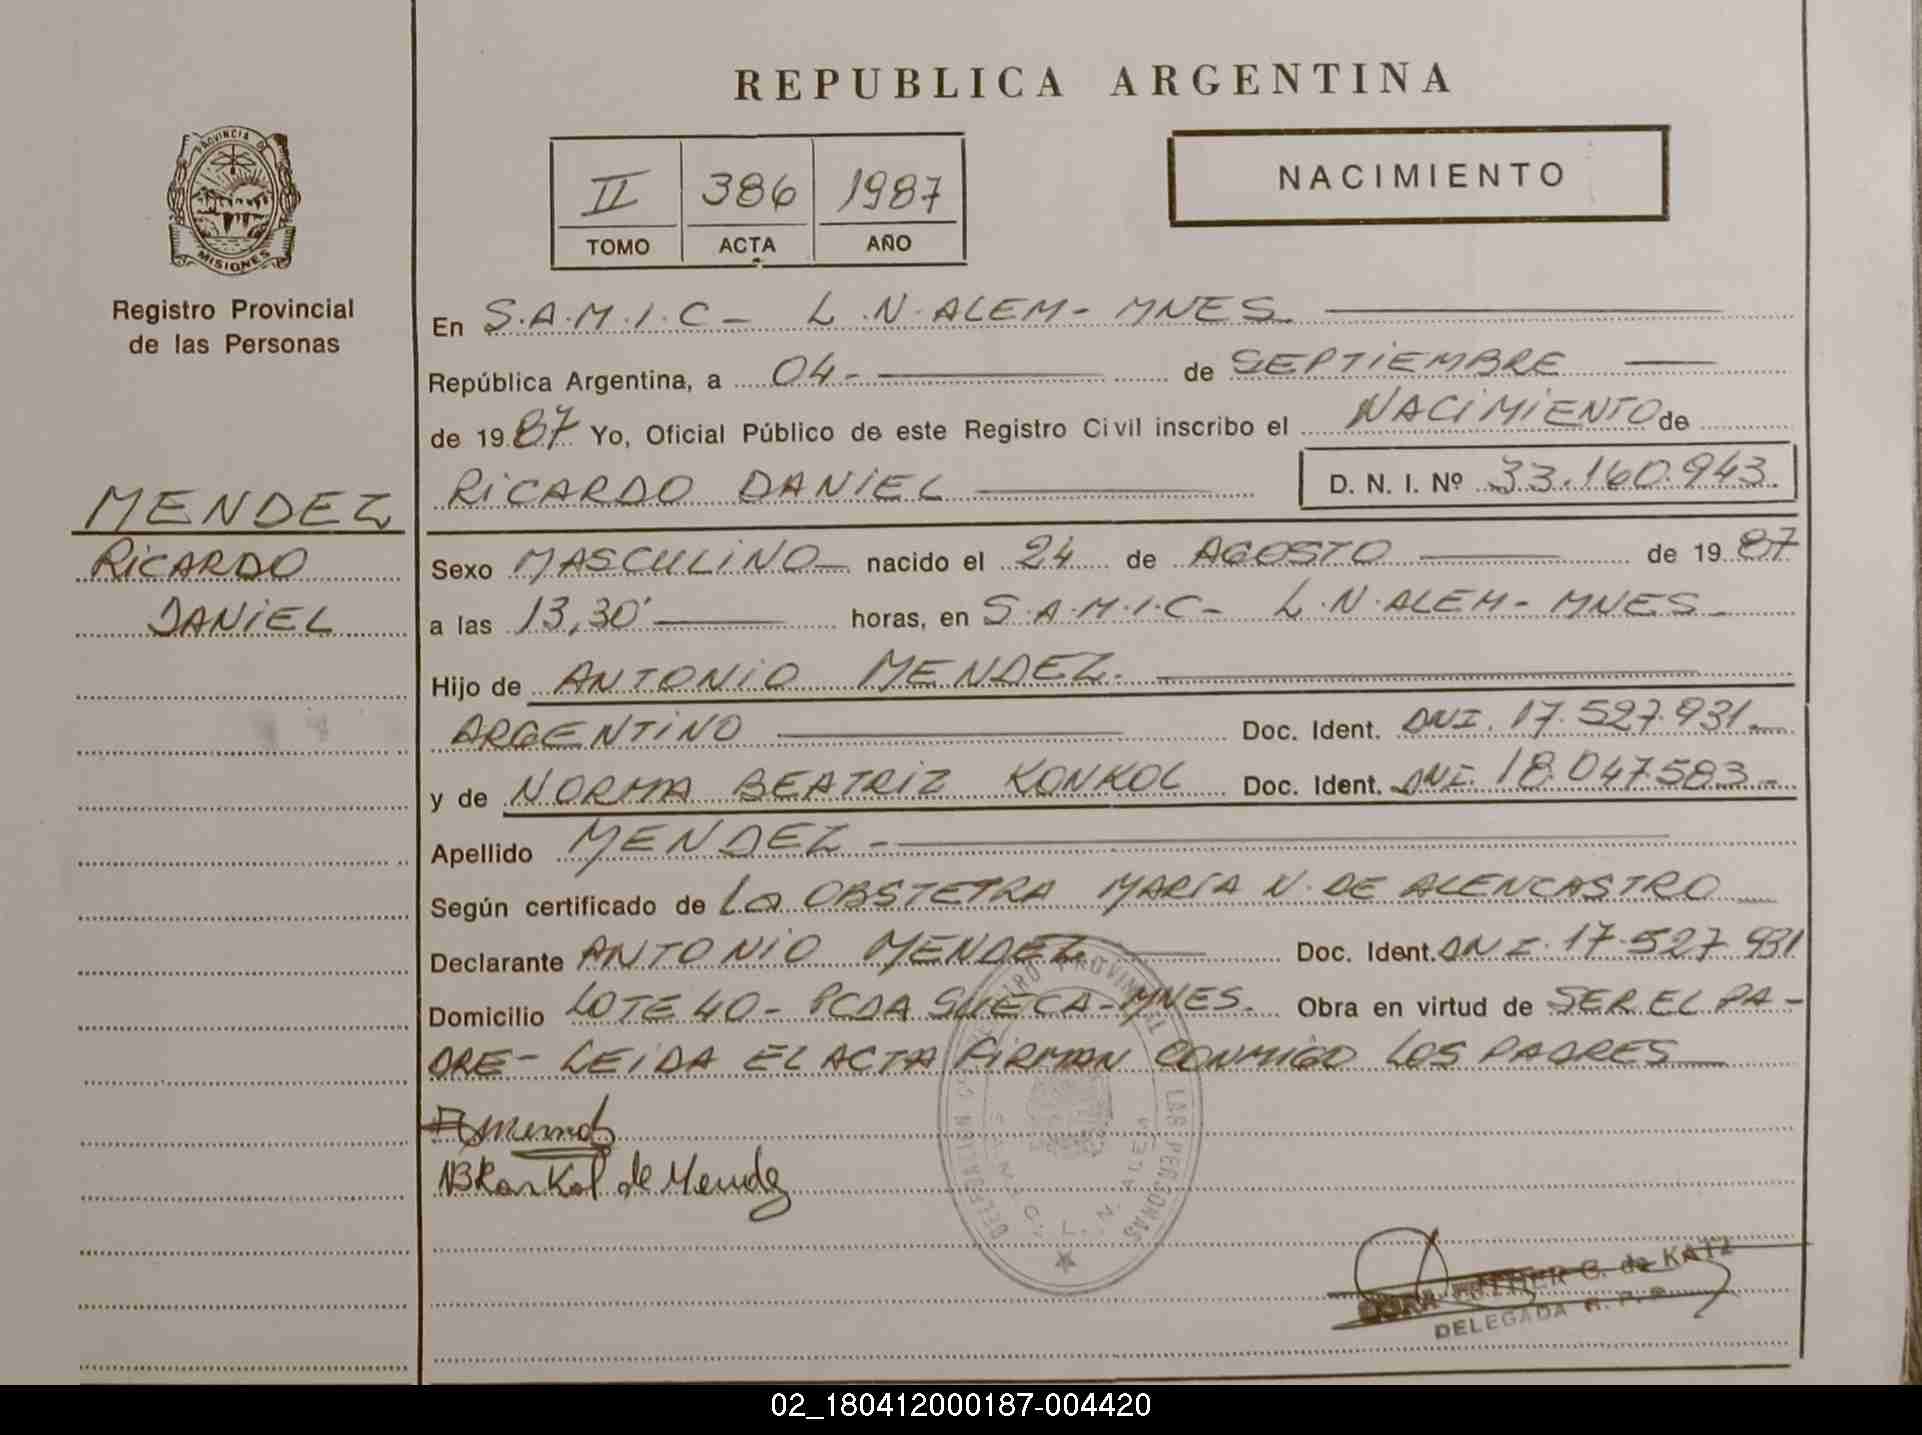 REPUBLICA ARGENTINA
PROVINCIA DE
MISIONES
Registro Provincial
de las Personas
II 386 1987
TOMO ACTA AÑO
NACIMIENTO
En S.A.M.I.C - L.N. ALEM - MNES.
República Argentina, a 04- de SEPTIEMBRE
de 1987 Yo, Oficial Público de este Registro Civil inscribo el NACIMIENTO de
RICARDO DANIEL D. N. I. Nº 33.160.943.
MENDEZ
RICARDO
DANIEL
Sexo MASCULINO nacido el 24 de AGOSTO de 1987
a las 13,30' horas, en S.A.M.I.C- L.N. ALEM - MNES -
Hijo de ANTONIO MENDEZ.
ARGENTINO Doc. Ident. DNI. 17.527.931.-
y de NORMA BEATRIZ KONKOL Doc. Ident. DNI. 18.047.583.-
Apellido MENDEZ -
Según certificado de La OBSTETRA MARÍA N. DE ALENCASTRO
Declarante ANTONIO MENDEZ Doc. Ident. DNI. 17.527.931
Domicilio LOTE 40 - PCDA SUECA - MNES. Obra en virtud de SER EL PA-
DRE - LEIDA EL ACTA FIRMAN CONMIGO LOS PADRES
NBKonKol de Mendez
DELEGACION REGISTRO PROVINCIAL LAS PERSONAS
L. N. ALEM
G. de KATZ
DELEGADA R. P. P.
02_180412000187-004420